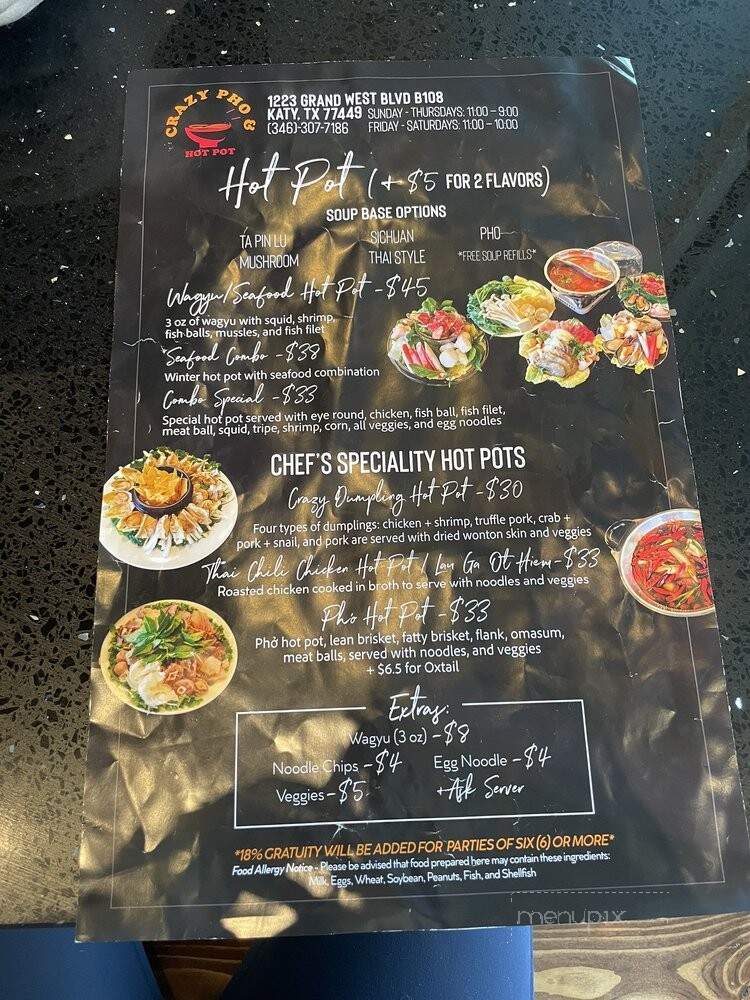 CRAZY PHO &
HOT POT
1223 GRAND WEST BLVD B108
KATY, TX 77449 SUNDAY - THURSDAYS: 11:00 – 9:00
(346)-307-7186 FRIDAY - SATURDAYS: 11:00 – 10:00
Hot Pot (+ $5 FOR 2 FLAVORS)
SOUP BASE OPTIONS
TA PIN LU SICHUAN PHO
MUSHROOM THAI STYLE *FREE SOUP REFILLS*
Wagyu/Seafood Hot Pot - $45
3 oz of wagyu with squid, shrimp,
fish balls, mussles, and fish filet
Seafood Combo - $38
Winter hot pot with seafood combination
Combo Special - $33
Special hot pot served with eye round, chicken, fish ball, fish filet,
meat ball, squid, tripe, shrimp, corn, all veggies, and egg noodles
CHEF'S SPECIALITY HOT POTS
Crazy Dumpling Hot Pot - $30
Four types of dumplings: chicken + shrimp, truffle pork, crab +
pork + snail, and pork are served with dried wonton skin and veggies
Thai Chili Chicken Hot Pot / Lau Ga Ot Hiem - $33
Roasted chicken cooked in broth to serve with noodles and veggies
Phở Hot Pot - $33
Phở hot pot, lean brisket, fatty brisket, flank, omasum,
meat balls, served with noodles, and veggies
+ $6.5 for Oxtail
Extras:
Wagyu (3 oz) - $8
Noodle Chips - $4 Egg Noodle - $4
Veggies - $5 + Ask Server
*18% GRATUITY WILL BE ADDED FOR PARTIES OF SIX (6) OR MORE*
Food Allergy Notice - Please be advised that food prepared here may contain these ingredients:
Milk, Eggs, Wheat, Soybean, Peanuts, Fish, and Shellfish
menupix